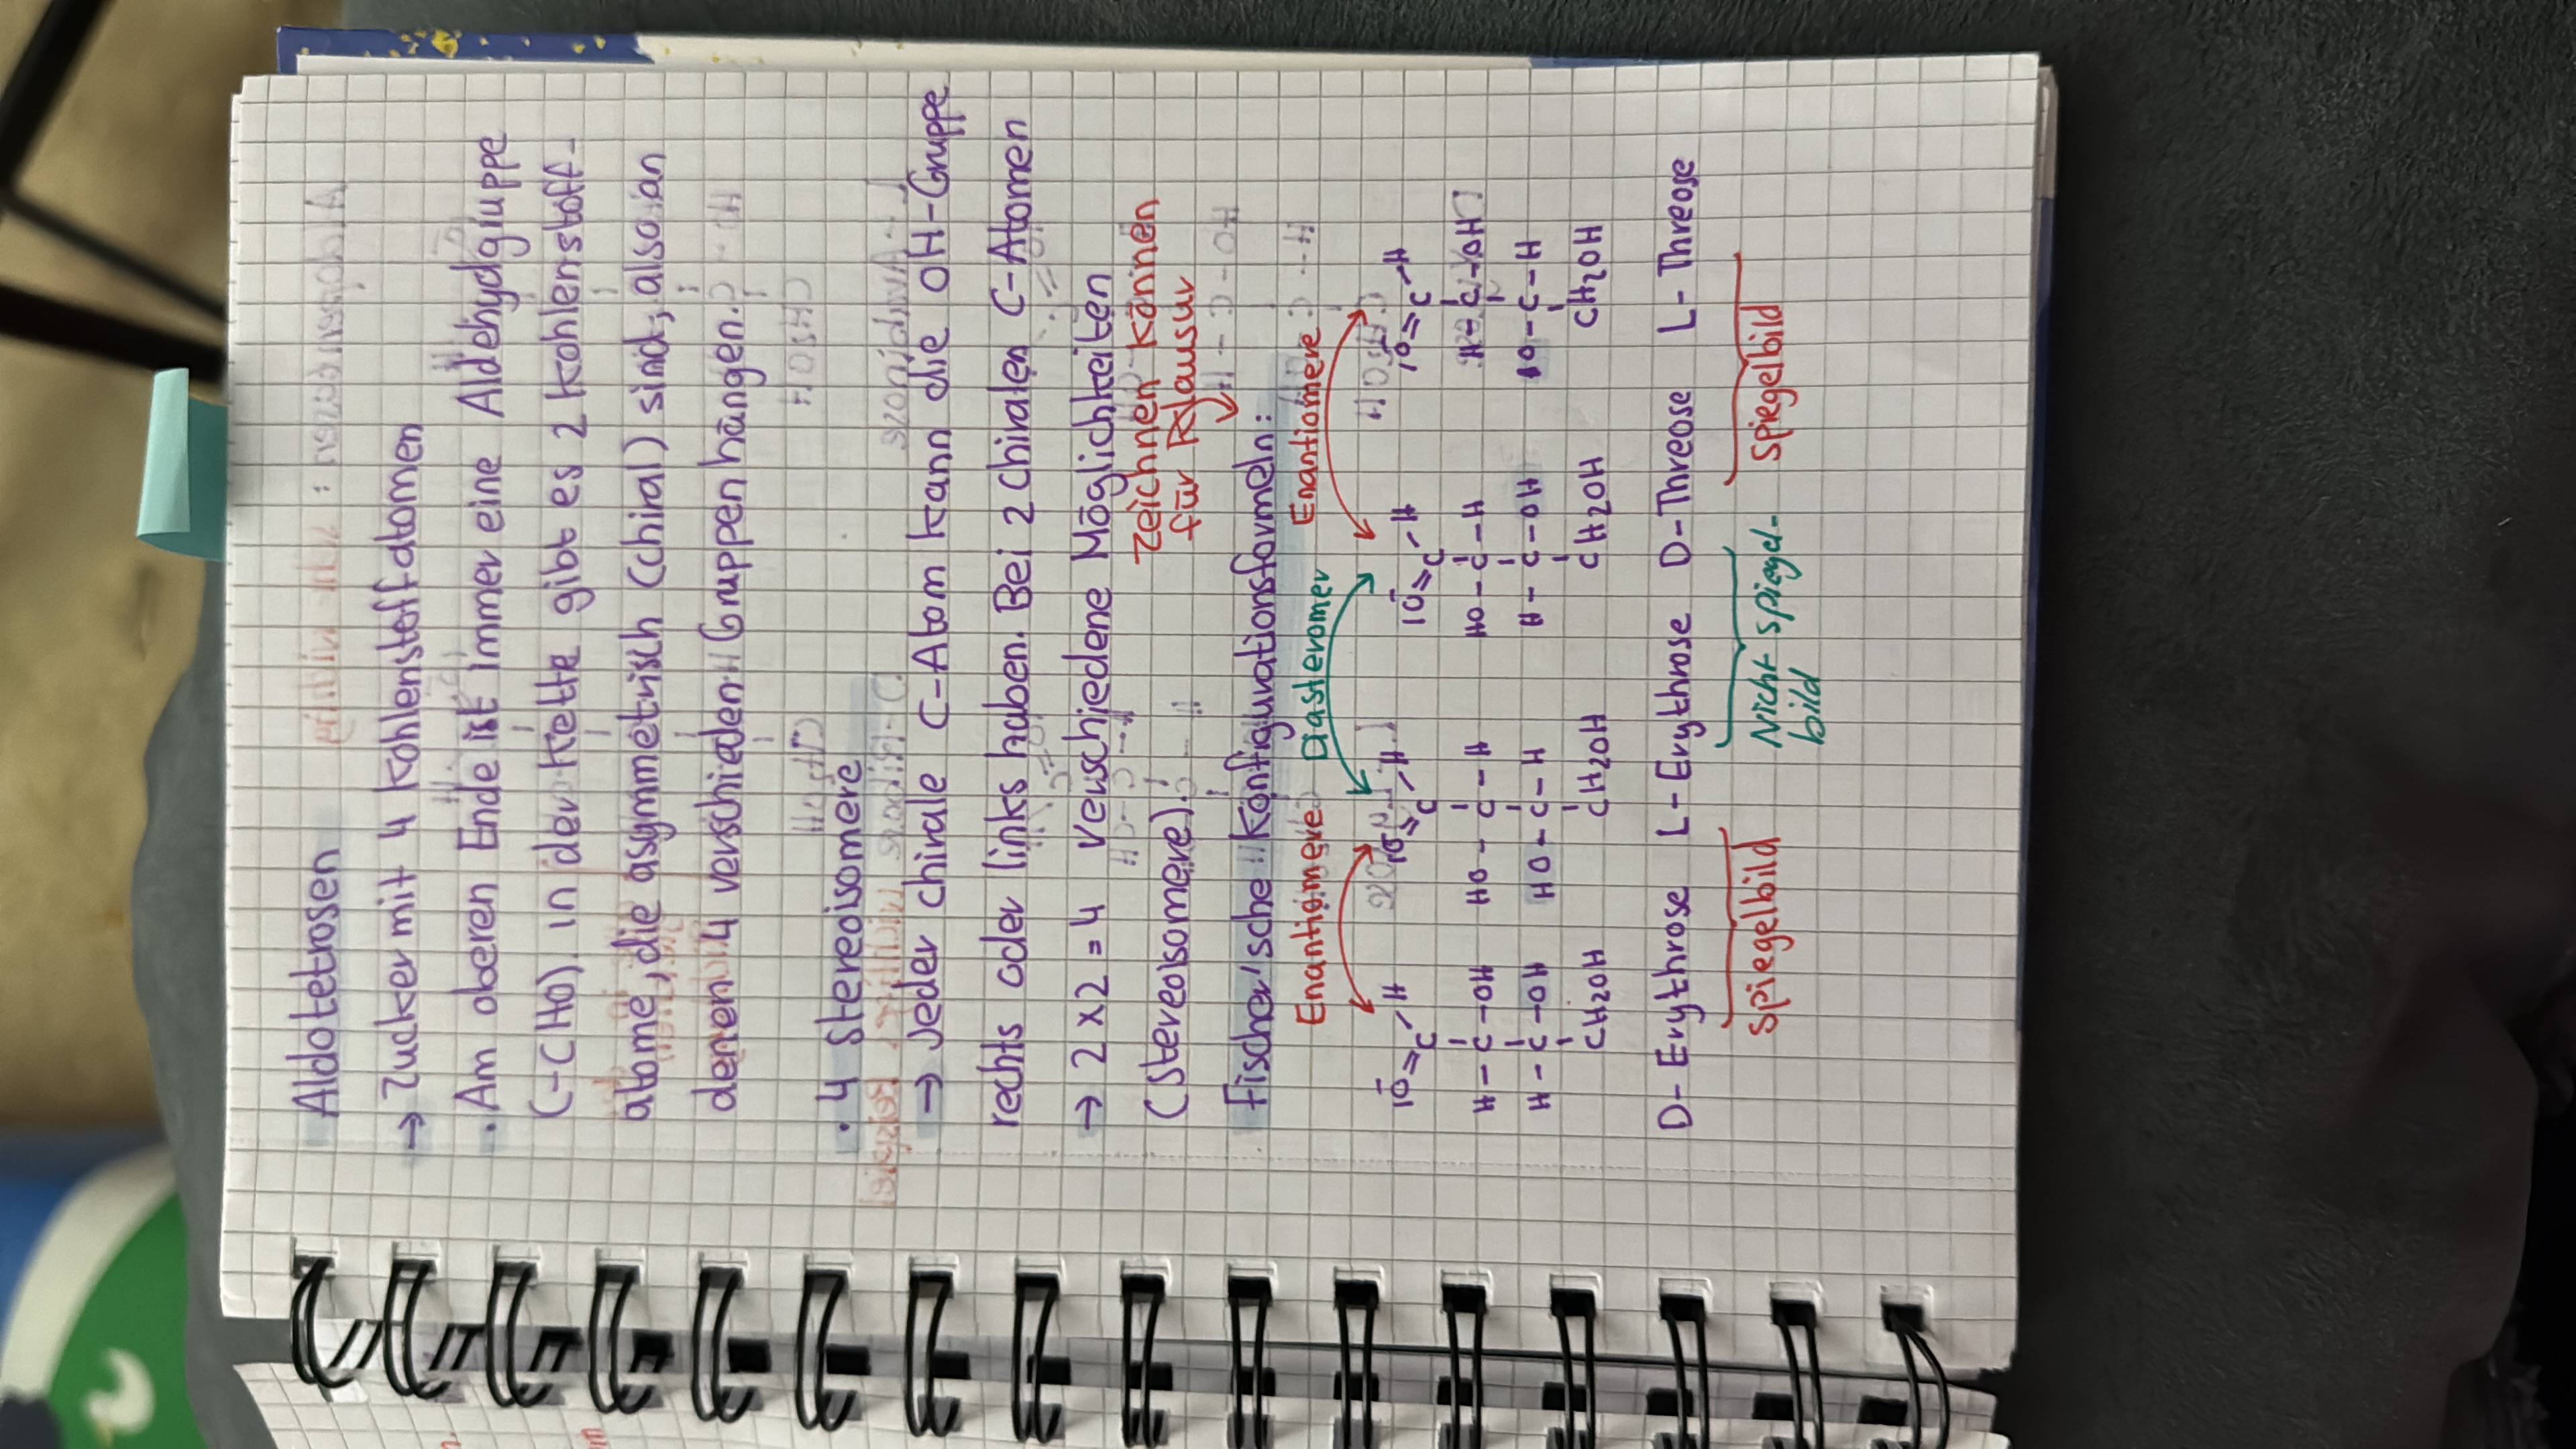 Aldotetrosen
→ Zucker mit 4 Kohlenstoffatomen
· Am oberen Ende ist immer eine Aldehydgruppe
(-CHO). in der Kette gibt es 2 Kohlenstoff-
atome, die asymmetrisch (chiral) sind, also an
denen 4 verschieden Gruppen hängen.
· 4 Stereoisomere
→ Jeder chirale C-Atom kann die OH-Gruppe
rechts oder links haben. Bei 2 chiralen C-Atomen
→ 2 x 2 = 4 verschiedene Möglichkeiten
(Stereoisomere).
Zeichnen können
für Klausur
Fischer'sche Konfigurationsformeln:
Enantiomere Diasteromer Enantiomere
|O̅=C-H |O̅=C-H |O̅=C-H |O̅=C-H
H-C-OH HO-C-H HO-C-H H-C-OH
H-C-OH HO-C-H H-C-OH HO-C-H
CH2OH CH2OH CH2OH CH2OH
D-Erythrose L-Erythrose D-Threose L-Threose
Spiegelbild Nicht spiegel- Spiegelbild
bild